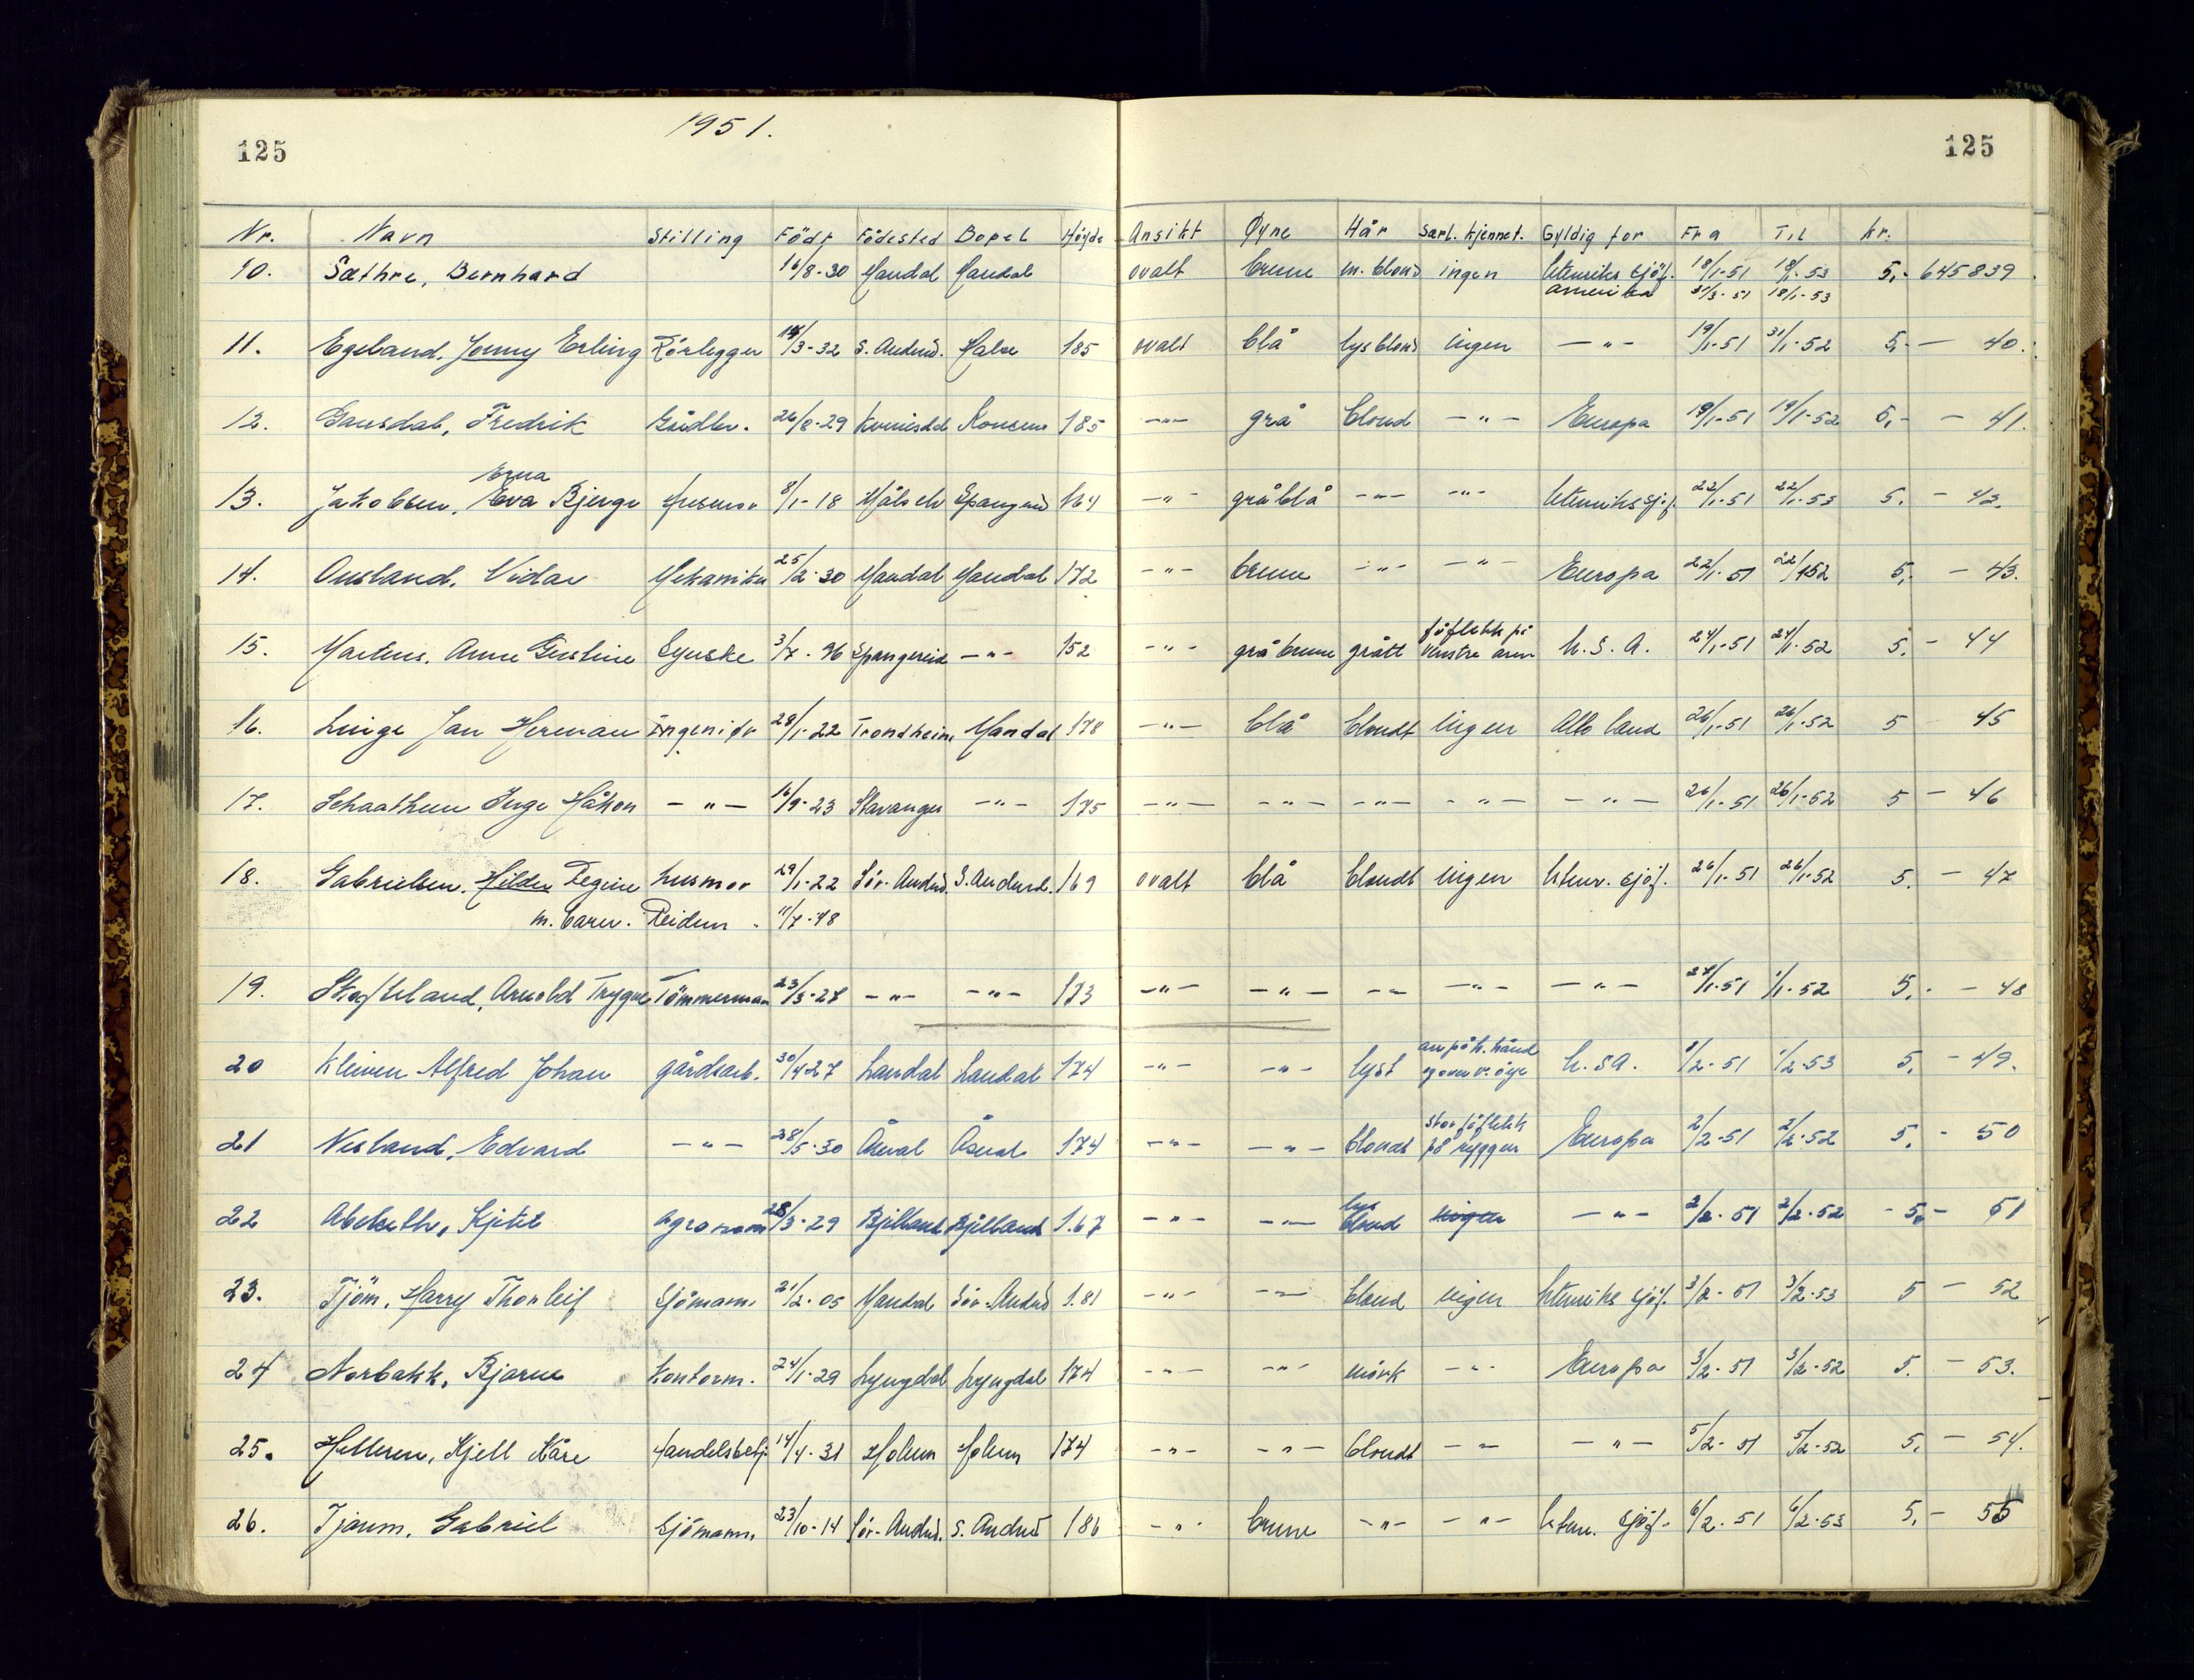 1951.
125 125
Nr. Navn Stilling Född Födested Bopel Höyde Ansikt Øyne Hår Sarl. kjennet. Gyldig for Fra Til kr.
10. Sæthre, Bernhard 16/8-30 Mandal Mandal ovalt brune m. blond ingen Utenriks sjöf. 18/1-51 18/1-53 5,- 645839
Amerika 31/3-51 18/1-53
11. Egeland, Jonny Erling Rörlegger 14/3-32 S. Audned. Halse 185 ovalt blå lys blond ingen -"- 19/1-51 31/1-52 5,- - 40.
12. Gausdal, Fredrik Gårdbr. 26/8-29 Kvinesdal 185 -"- grå blond -"- Europa 19/1-51 19/1-52 5,- - 41.
Erna
13. Jakobsen, Eva Bjerge Husmor 8/1-18 Spangereid 164 -"- gråblå -"- -"- Utenriks sjöf. 22/1-51 22/1-53 5. - 42.
14. Ousland, Vidar Mekaniker 25/2-30 Mandal Mandal 172 -"- brune -"- -"- Europa 22/1-51 22/1-52 5,- - 43.
föflekk på
15. Martens, Anne Gustine 3/7-96 Spangereid -"- 152 -"- grå brune grått venstre arm U.S.A. 24/1-51 24/1-52 5. - 44
16. Linge Jan Herman Ingeniør 28/1-22 Trondheim Mandal 178 -"- blå blondt ingen Alle land 26/1-51 26/1-52 5 45
17. Schaathun Inge Håkon -"- 16/9-23 Stavanger -"- 175 -"- -"- -"- -"- -"- 26/1-51 26/1-52 5 - 46
18. Gabrielsen, Hilda Regine husmor 29/1-22 Sör-Audned. S. Audned. 169 ovalt blå blondt ingen Utenr. sjöf. 26/1-51 26/1-52 5. - 47
m. barn. Reidun 11/7-48
19. Skofteland, Arnold Trygve Tömmermann 23/3-27 -"- -"- 173 -"- -"- -"- -"- -"- 27/1-51 1/1-52 5,- - 48
arr på h. hånd
20 Kleiven Alfred Johan gårdsarb. 30/4-27 Laudal Laudal 174 -"- -"- lyst og over v. öye U.S.A. 1/2-51 1/2-53 5. - 49.
stor föflekk
21 Nesland, Edvard -"- 28/5-30 Åseral Åseral 174 -"- -"- blondt på ryggen Europa 2/2-51 2/2-52 5. - 50
lys
22 Abelseth, Kjetil agronom 28/3-29 Bjelland Bjelland 1.67 -"- -"- blond ingen -"- 2/2-51 2/2-52 - 5,- 51
23. Tjöm, Harry Thorleif Sjömann 21/2-05 Mandal Sör-Audned 1.81 -"- -"- blond ingen Utenriks sjöf. 3/2-51 3/2-53 5 - 52
24 Norbakk, Bjarne Kontorm. 24/1-29 Lyngdal Lyngdal 174 -"- -"- mörk -"- Europa 3/2-51 3/2-52 5. - 53.
25. Helleren, Kjell Kåre Handelsbetj. 14/4-31 Holum Holum 174 -"- -"- blondt -"- -"- 5/2-51 5/2-52 5. - 54.
26. Tjaum, Gabriel Sjömann 23/10-14 Sör-Audned. S. Audned 186 -"- brune -"- -"- Utenr. sjöf. 6/2-51 6/2-53 5. - 55